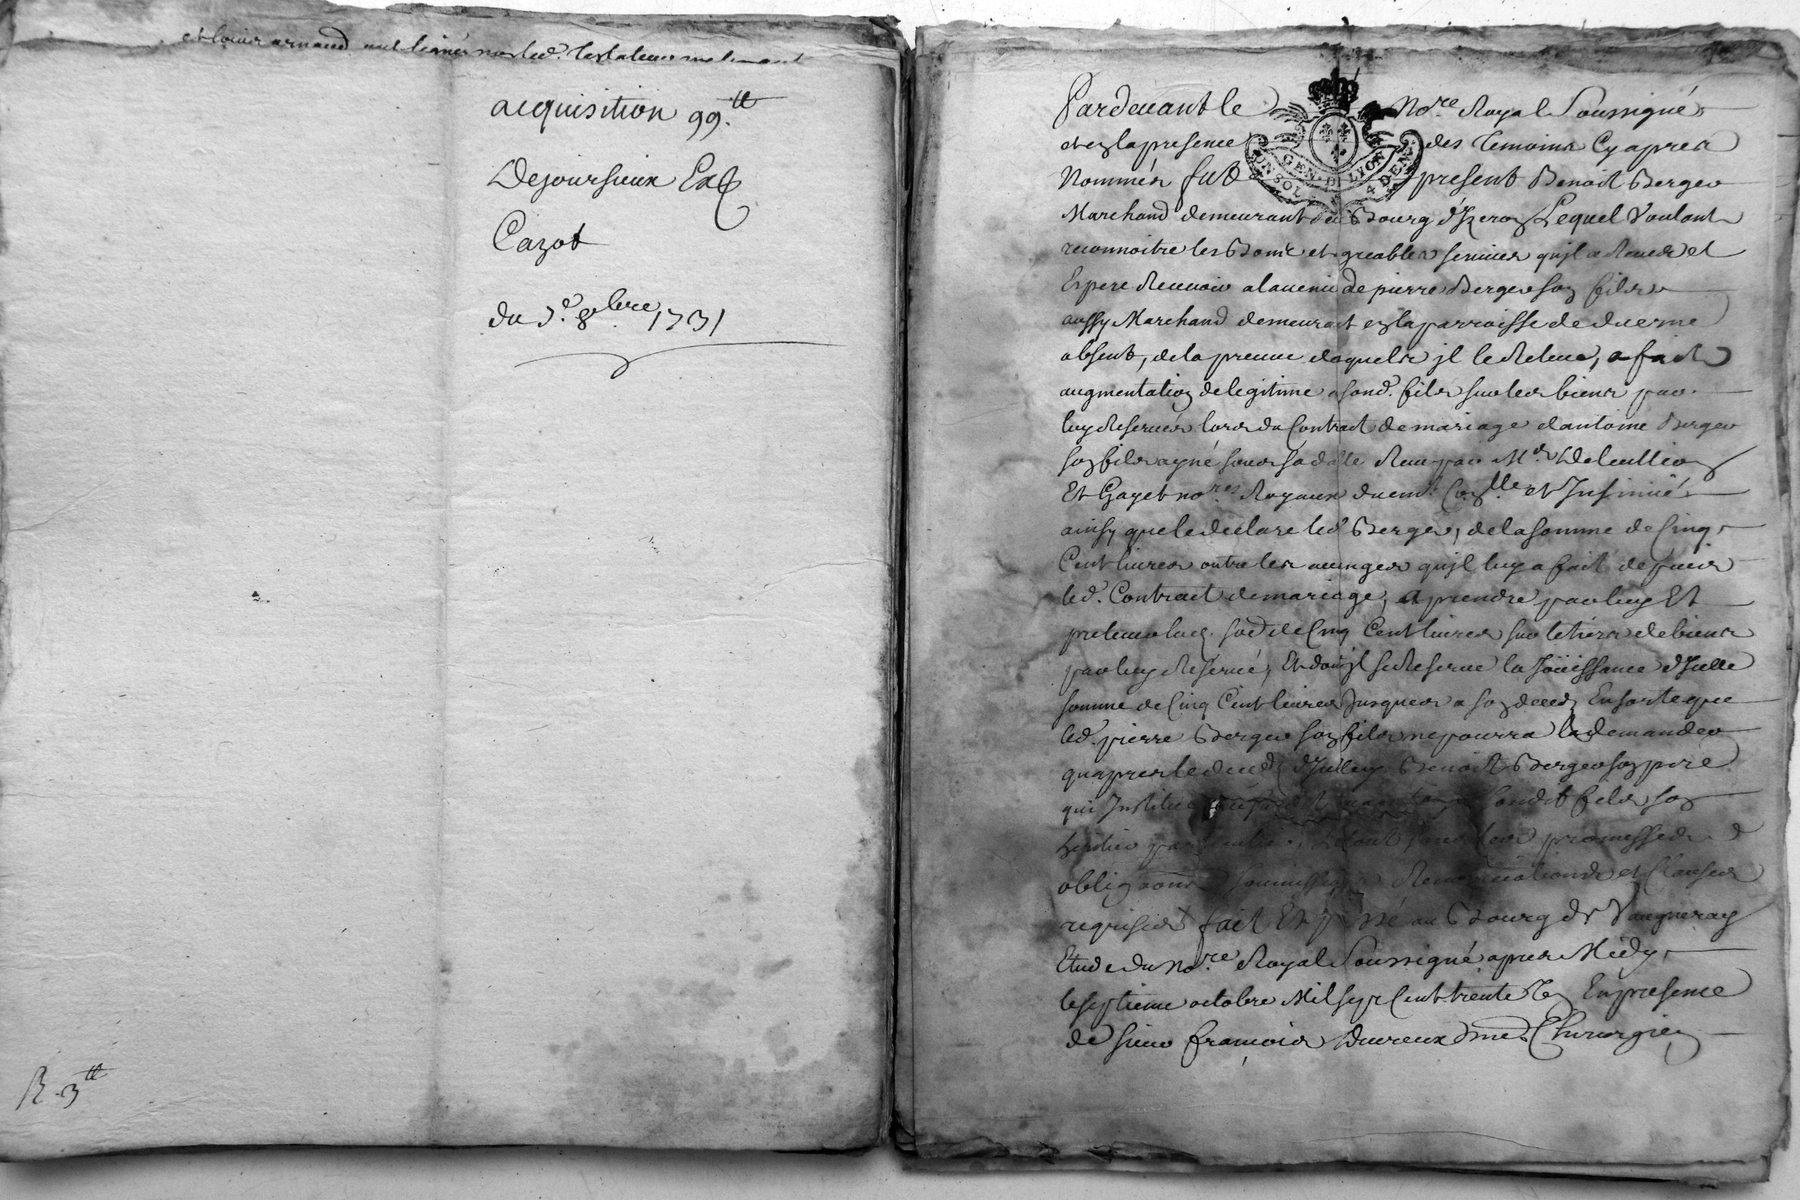 et louis arnaud ont signés non led. testateur
acquisition 99.tt
Dejoursieux
Cazot
du 7e. 8bre. 1731
R. 3tt
Pardevant le No.re Royal Soussigné
et en la presence des temoins Cy apres
Nommés fut present Benoist Berger
GEN. D LYON
UN SOL 4 DEN.
Marchand demeurant du Bourg d'Izeron Lequel Voulant
reconnoitre les Bons et agreables services qu'jl a Receu et
Espere Recevoir a lavenir de pierre Berger son fils
aussy Marchand demeurant en la parroisse de duerne
absent, de la preuve desquels jl le Releve, a fait
augmentation de legitime a sond. fils sur les biens par
luy Reservés lors du Contract de mariage dantoine Berger
son fils ayné sous sa datte Receu par Me
Et Gayet no.res Royaux Controllé et Insinué
ainsy que le declare led Berger, de la somme de Cinq
Cent livres outre les avantages qujl luy a fait depuis
led. Contract de mariage, a prendre par luy Et
prelever lad. so.e de Cinq Cent livres sur lesd. biens
par luy Reservé, Et dont jl se Reserve la Joüissance d'Icelle
somme de Cinq Cent livres Jusques a son deceds, En sorte que
led. pierre Berger son fils ne pourra la demander
quapres le deceds d'Icelluy Benoist Berger son pere
qui Institue sondit fils son
heritier particulier promesses
obligations soumissions Renonciations et Clauses
requises fait Et passé au Bourg de Vaugneray
Etude du No.re Royal Soussigné apres Midy
le septieme octobre Mil sept Cent trente Un En presence
de sieur françois Ducreux me. Chirurgien